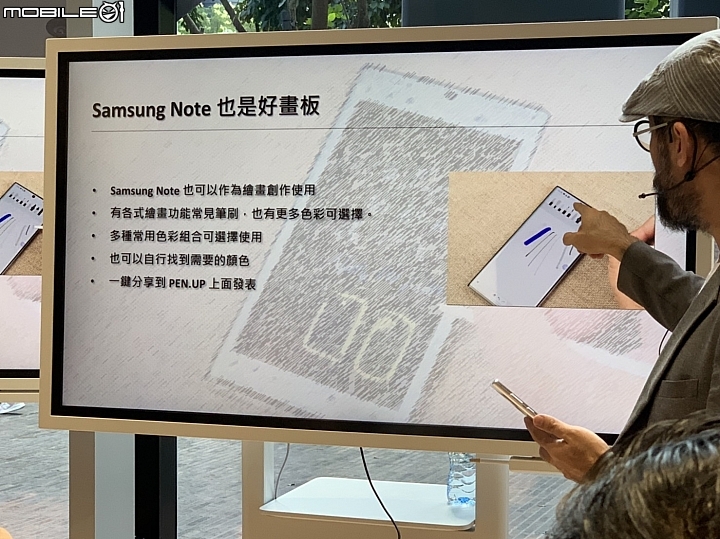 MOBILE01
Samsung Note 也是好畫板
• Samsung Note 也可以作為繪畫創作使用
• 有各式繪畫功能常見筆刷，也有更多色彩可選擇。
• 多種常用色彩組合可選擇使用
• 也可以自行找到需要的顏色
• 一鍵分享到 PEN.UP 上面發表